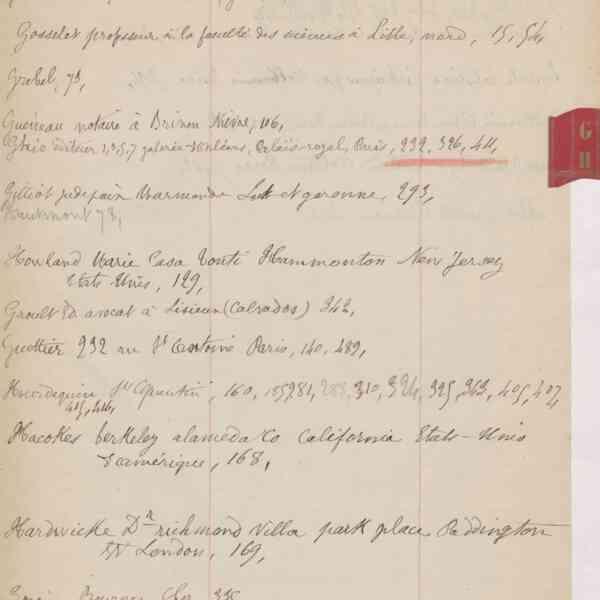 Gosselet professeur à la faculté des sciences à Lille, nord, 15, 54,
Grebel, 78,
Gueneau notaire à Brinon Nièvre, 106,
Ghio éditeur 1,3,5,7 galerie d'Orléans, Palais-royal, Paris, 232, 326, 411,
G H
Gilliot juge paix Marmande Lot et garonne, 293,
Hautmont 78,
Howland Marie Casa Tonti Hammonton New Jersey
Etats Unis, 129,
Groult Ed. avocat à Lisieux (Calvados) 342,
Guettier 232 rue St Antoine Paris, 140, 489,
St Quentin, 160, 310, 324, 325, 362, 405, 407,
berkeley alameda Co California Etats-Unis
d'amérique, 168,
Hardwicke Dr richmond villa park place Paddington
W London, 169,